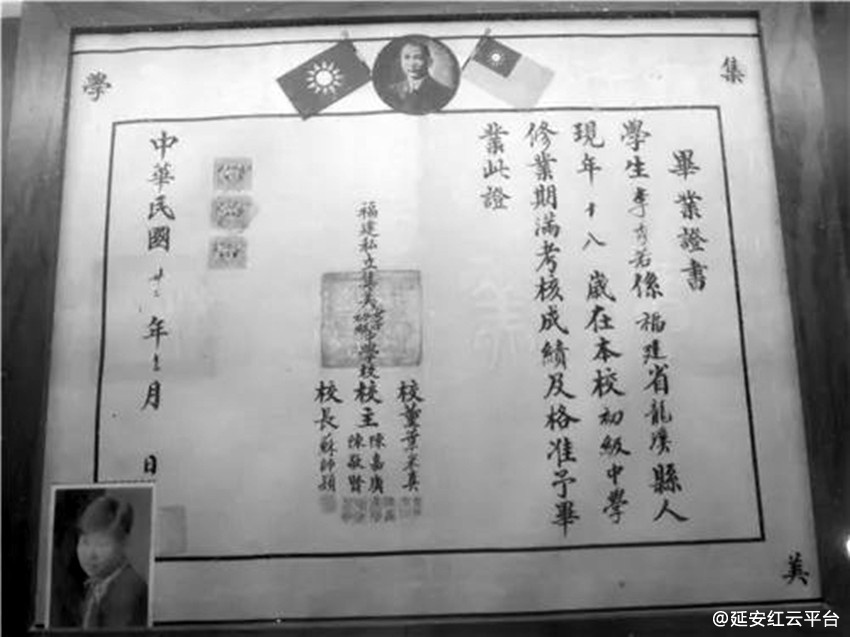 集
美
學
畢業證書
學生李若係福建省龍溪縣人
現年十八歲在本校初級中學
修業期滿考核成績及格准予畢
業此證
福建私立集美學校
校董葉采真
校主陳嘉庚
陳敬賢
校長蘇師穎
中華民國年月 日
@延安红云平台